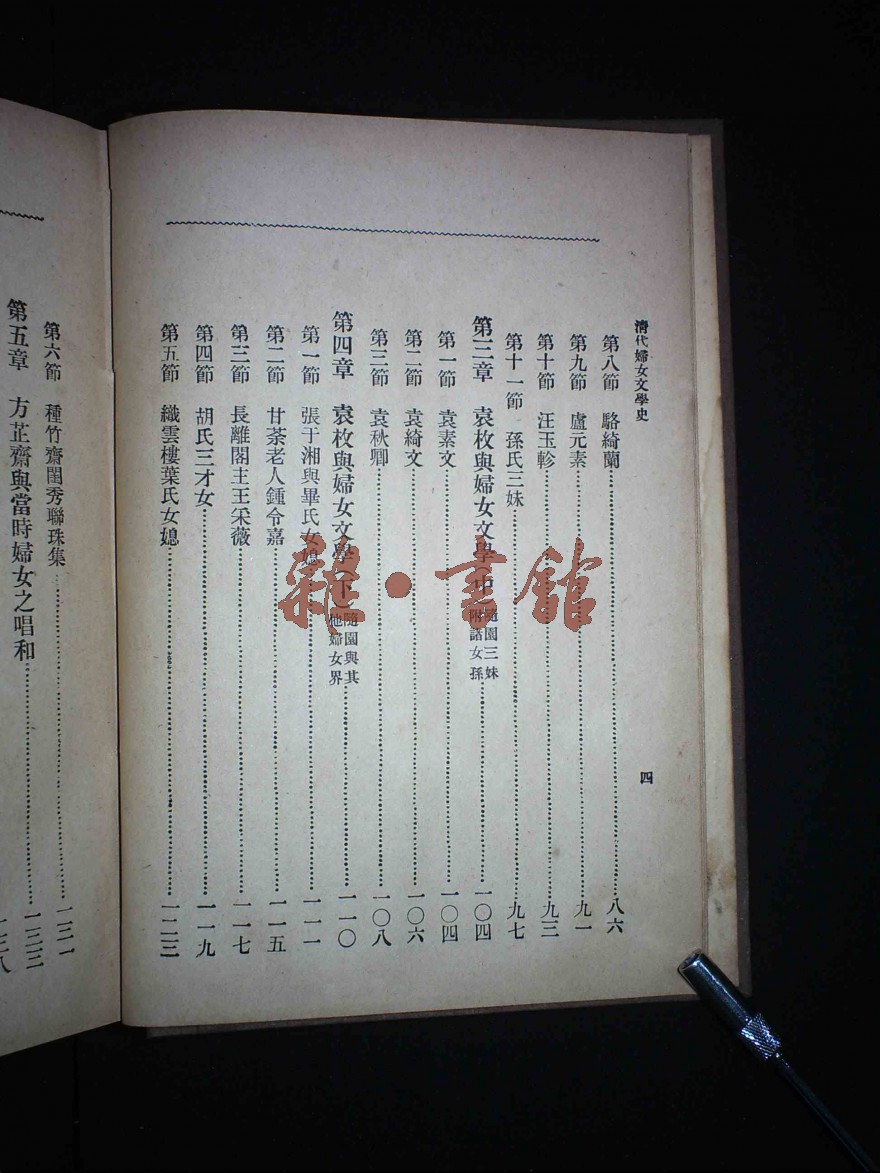 清代婦女文學史
四
第八節　駱綺蘭……八六
第九節　盧元素……九一
第十節　汪玉軫……九三
第十一節　孫氏三妹……九七
第三章　袁枚與婦女文學(中)隨園三妹附諸女孫……一〇四
第一節　袁素文……一〇四
第二節　袁綺文……一〇六
第三節　袁秋卿……一〇八
第四章　袁枚與婦女文學(下)隨園與其他婦女界……一一〇
第一節　張于湘與畢氏女媳……一一一
第二節　甘荼老人鍾令嘉……一一五
第三節　長離閣主王采薇……一一七
第四節　胡氏三才女……一一九
第五節　織雲樓葉氏女媳……一二三
第六節　種竹齋閨秀聯珠集……一三一
第五章　方芷齋與當時婦女之唱和……一三三
一三八
雜·書館